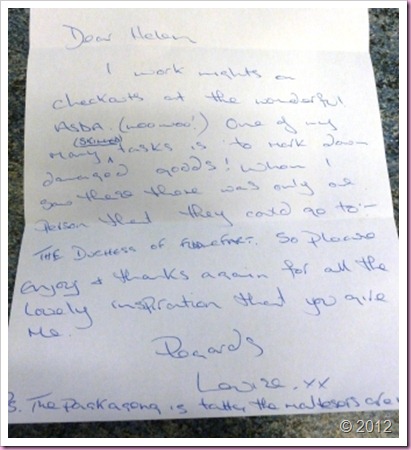 Dear Helen
I work nights on
checkouts at the wonderful
ASDA. (woowoo!) One of my
(SKILLED)
many tasks is to mark down
damaged goods! When I
saw these there was only one
person that they could go to:-
THE DUCHESS OF. So please
enjoy & thanks again for all the
lovely inspiration that you give
me.
Regards
Louise. xx
S. The packaging is tatty, the maltesers are
© 2012